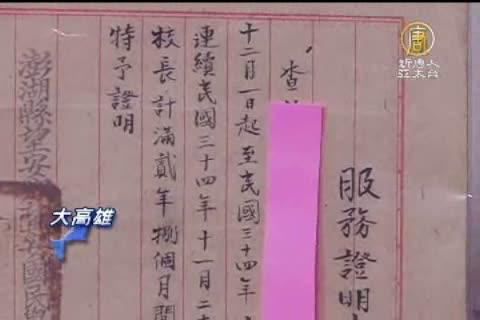 服務證明
查
十二月一日起至民國三十四年
連續民國三十四年十一月二
校長計滿貳年捌個月間
特予證明
澎湖縣望安
國民
大高雄
唐
新唐人
亞太台